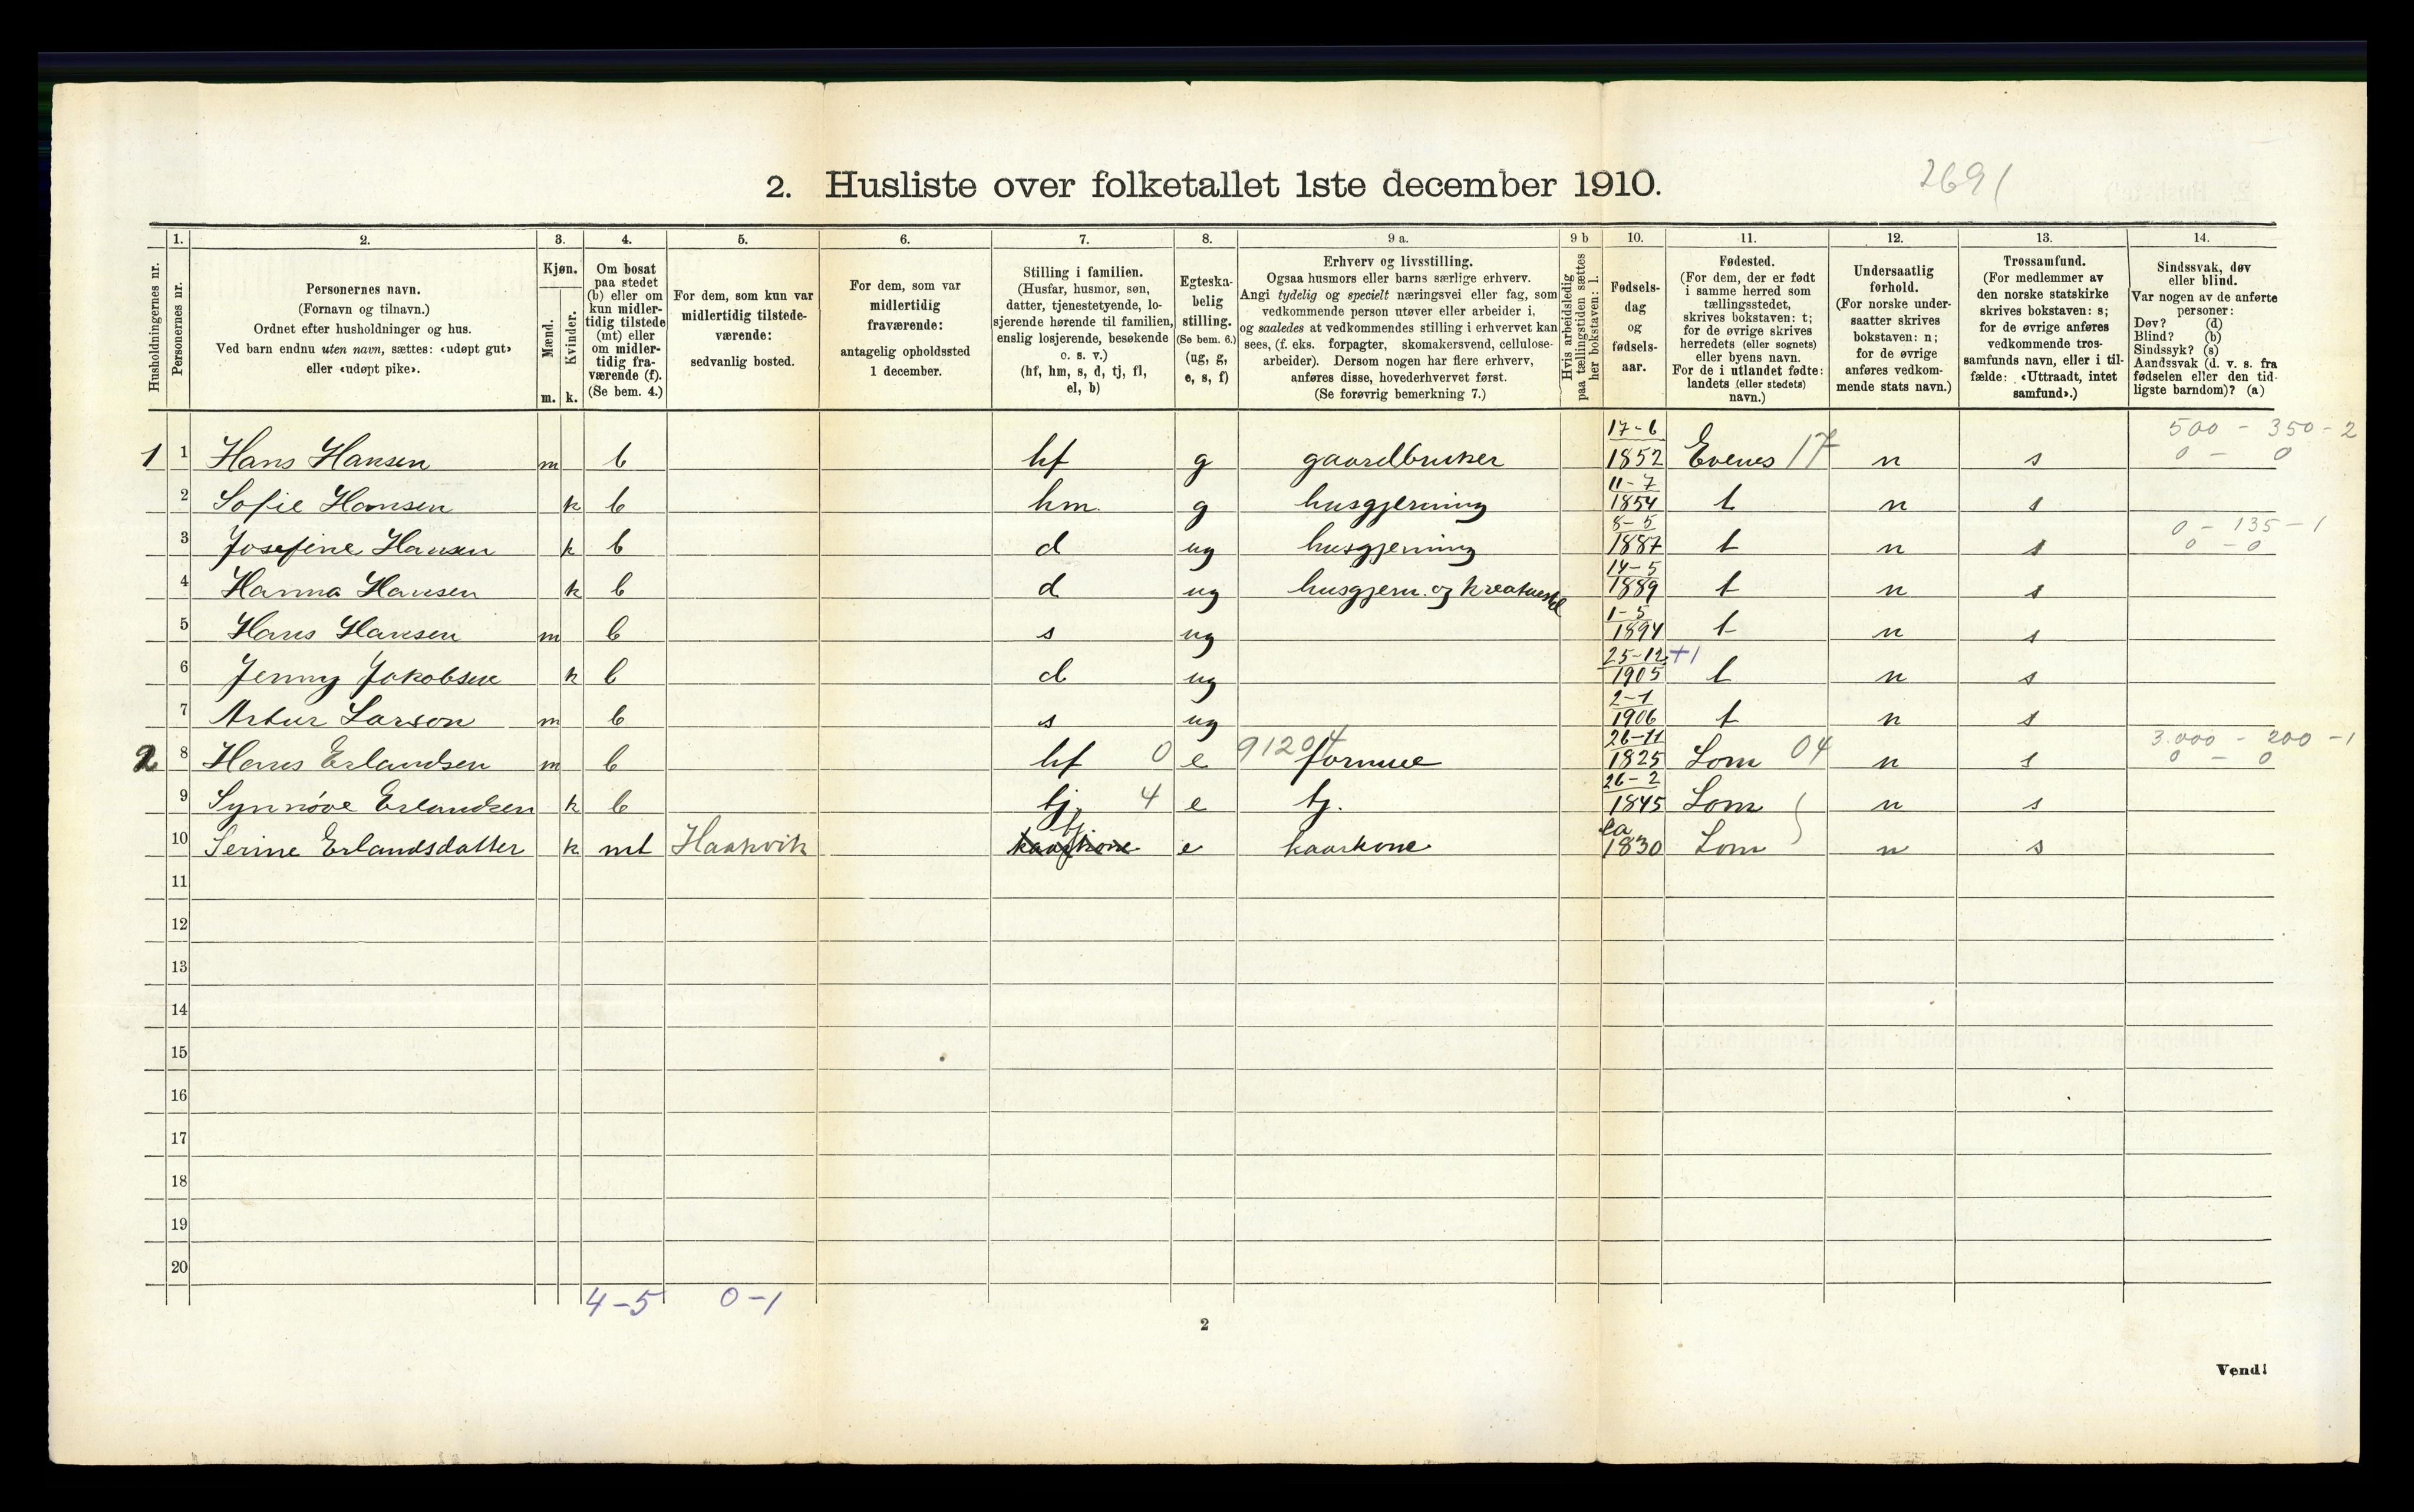 2. Husliste over folketallet 1ste december 1910.
2691
1. 2. 3. 4. 5. 6. 7. 8. 9 a. 9 b 10. 11. 12. 13. 14.
Husholdningernes nr.
Personernes nr.
Personernes navn.
(Fornavn og tilnavn.)
Ordnet efter husholdninger og hus.
Ved barn endnu uten navn, sættes: «udøpt gut»
eller «udøpt pike».
Kjøn.
Mænd.
Kvinder.
m. k.
Om bosat
paa stedet
(b) eller om
kun midler-
tidig tilstede
(mt) eller
om midler-
tidig fra-
værende (f).
(Se bem. 4.)
For dem, som kun var
midlertidig tilstede-
værende:
sedvanlig bosted.
For dem, som var
midlertidig
fraværende:
antagelig opholdssted
1 december.
Stilling i familien.
(Husfar, husmor, søn,
datter, tjenestetyende, lo-
sjerende hørende til familien,
enslig losjerende, besøkende
o. s. v.)
(hf, hm, s, d, tj, fl,
el, b)
Egteska-
belig
stilling.
(Se bem. 6.)
(ug, g,
e, s, f)
Erhverv og livsstilling.
Ogsaa husmors eller barns særlige erhverv.
Angi tydelig og specielt næringsvei eller fag, som
vedkommende person utøver eller arbeider i,
og saaledes at vedkommendes stilling i erhvervet kan
sees, (f. eks. forpagter, skomakersvend, cellulose-
arbeider). Dersom nogen har flere erhverv,
anføres disse, hovederhvervet først.
(Se forøvrig bemerkning 7.)
Hvis arbeidsledig
paa tællingstiden sættes
her bokstaven: l.
Fødsels-
dag
og
fødsels-
aar.
Fødested.
(For dem, der er født
i samme herred som
tællingsstedet,
skrives bokstaven: t;
for de øvrige skrives
herredets (eller sognets)
eller byens navn.
For de i utlandet fødte:
landets (eller stedets)
navn.)
Undersaatlig
forhold.
(For norske under-
saatter skrives
bokstaven: n;
for de øvrige
anføres vedkom-
mende stats navn.)
Trossamfund.
(For medlemmer av
den norske statskirke
skrives bokstaven: s;
for de øvrige anføres
vedkommende tros-
samfunds navn, eller i til-
fælde: «Uttraadt, intet
samfund».)
Sindssvak, døv
eller blind.
Var nogen av de anførte
personer:
Døv? (d)
Blind? (b)
Sindssyk? (s)
Aandssvak (d. v. s. fra
fødselen eller den tid-
ligste barndom)? (a)
1 1 Hans Hansen m b hf g gaardbruker 17-6 1852 Evenes 17 n s 500 - 350 - 2 0 - 0
2 Sofie Hansen k b hm. g husgjerning 11-7 1854 t n s
3 Josefine Hansen k b d ug husgjerning 8-5 1887 t n s 0 - 135 - 1 0 - 0
4 Hanna Hansen k b d ug husgjern. og kreaturstel 14-5 1889 t n s
5 Hans Hansen m b s ug 1-5 1894 t n s
6 Jenny Jakobsen k b d ug 25-12 1905 +1 t n s
7 Artur Larson m b s ug 2-1 1906 t n s
2 8 Hans Erlandsen m b hf 0 e 91204 formue 26-11 1825 Lom 04 n s 3.000 - 200 - 1 0 - 0
9 Synnøve Erlandsen k b tj. 4 e tj. 26-2 1845 Lom n s
10 Serine Erlandsdatter k mt Haakvik kaarkone fj e kaarkone ca 1830 Lom n s
11
12
13
14
15
16
17
18
19
20
4-5 0-1
2
Vend!